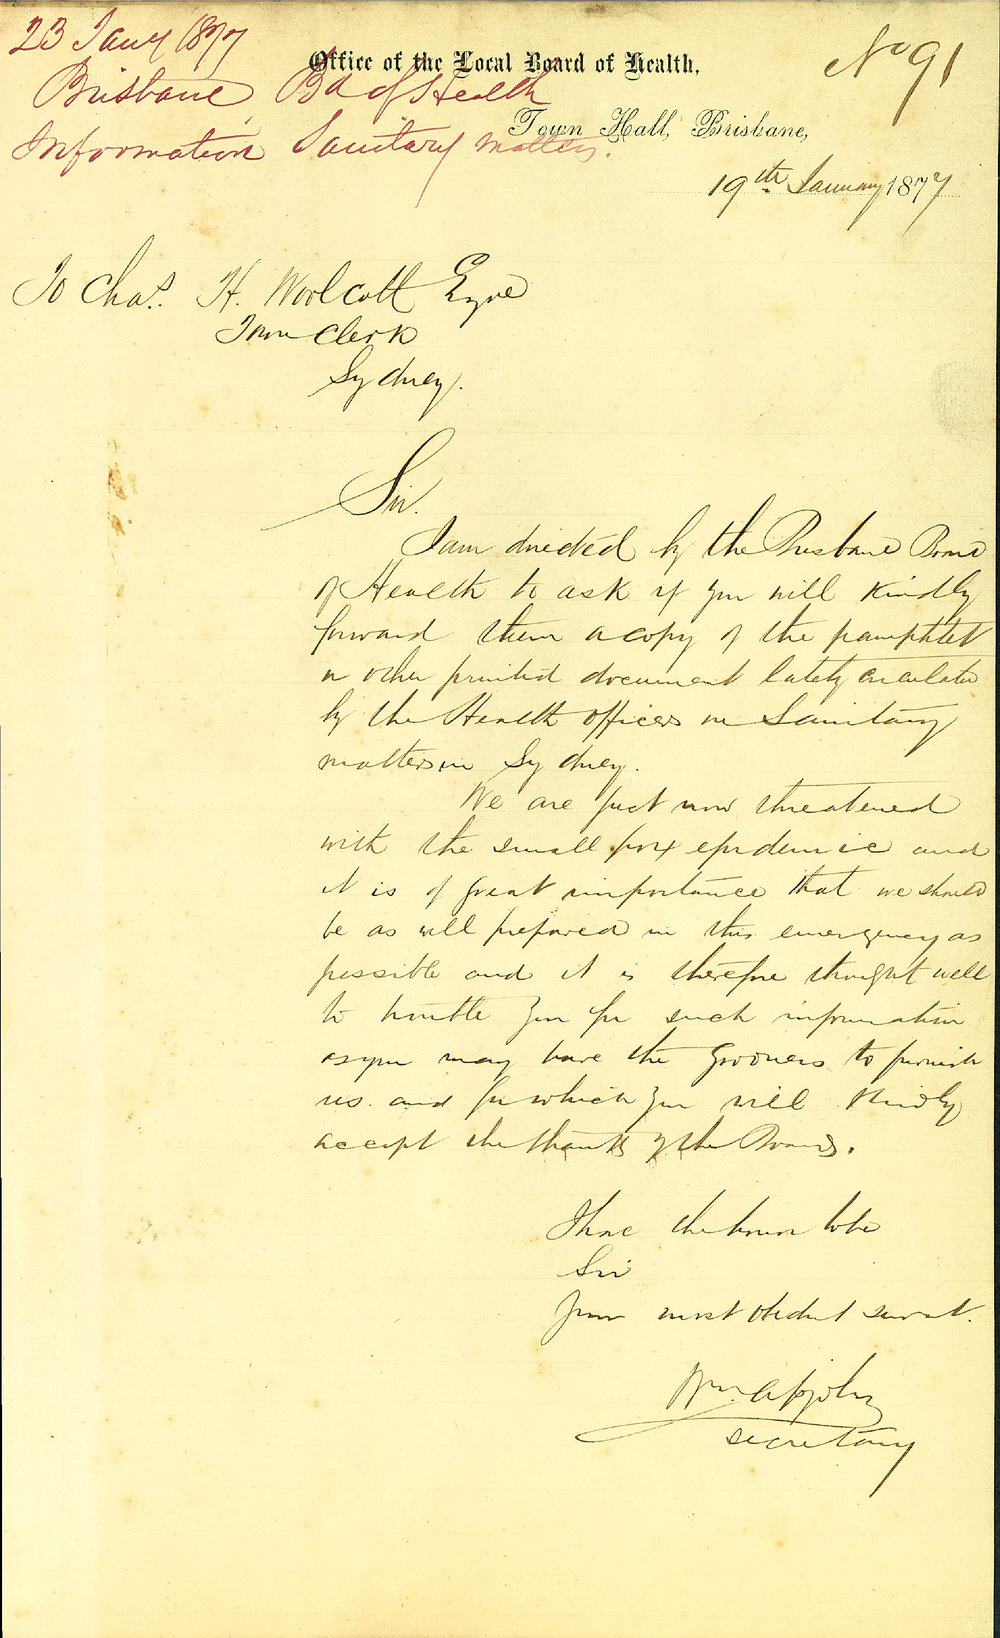 23 Jany 1877
Brisbane Bd of Health
Information Sanitary matters.
No 91
Office of the Local Board of Health,
Town Hall, Brisbane,
19th January 1877
To Chas. H. Woolcott Esqre
Town Clerk
Sydney.
Sir.
I am directed by the Brisbane Board
of Health to ask if you will kindly
forward them a copy of the pamphlet
or other printed document lately circulated
by the Health officers on Sanitary
matters in Sydney.
We are just now threatened
with the small pox epidemic and
it is of great importance that we should
be as well prepared in this emergency as
possible and it is therefore thought well
to trouble you for such information
as you may have the goodness to furnish
us and for which you will kindly
accept the thanks of the Board.
I have the honor to be
Sir
Your most obedient servant.
Wm.
Secretary